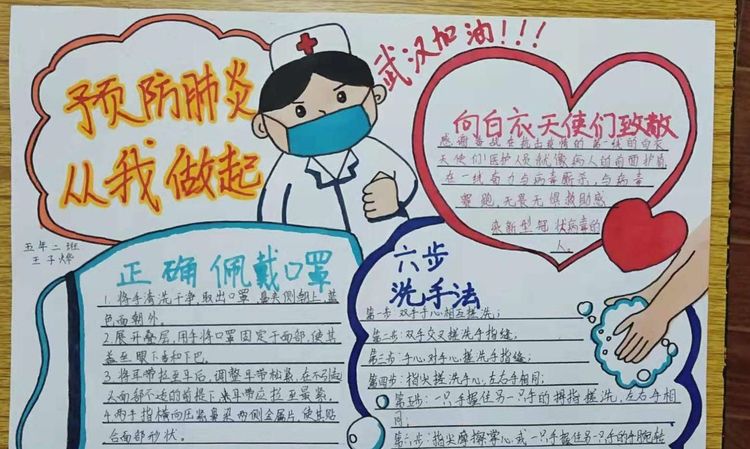 预防肺炎
从我做起
武汉加油!!!
五年二班
王子烨
向白衣天使们致敬
感谢奋战在抗击疫情的第一线的白衣
天使们!医护人员就像病人的前面护盾
在一线奋力与病毒厮杀,与病毒
无畏无惧救助感
染新型冠状病毒的
人。
正确佩戴口罩
1.将手清洗干净,取出口罩,鼻夹侧朝上,蓝
色面朝外。
2.展开叠层,用手将口罩固定于面部,使其
盖至眼下鼻和下巴。
3.将耳带拉至耳后,调整耳带松紧,在不引起
面部不适的前提下来耳带应拉至最紧,
4.两手指横向压紧鼻梁两侧金属片,使其贴
合面部形状。
六步
洗手法
第一步:双手手心相互搓洗;
第二步:双手交叉搓洗手指缝;
第三步:手心对手心,搓洗手指缝;
第四步:指尖搓洗手心,左右手相同;
第五步:一只手握住另一只手的拇指搓洗,左右手相
同;
第六步:指尖摩擦掌心或一只手握住另一只手的手腕转